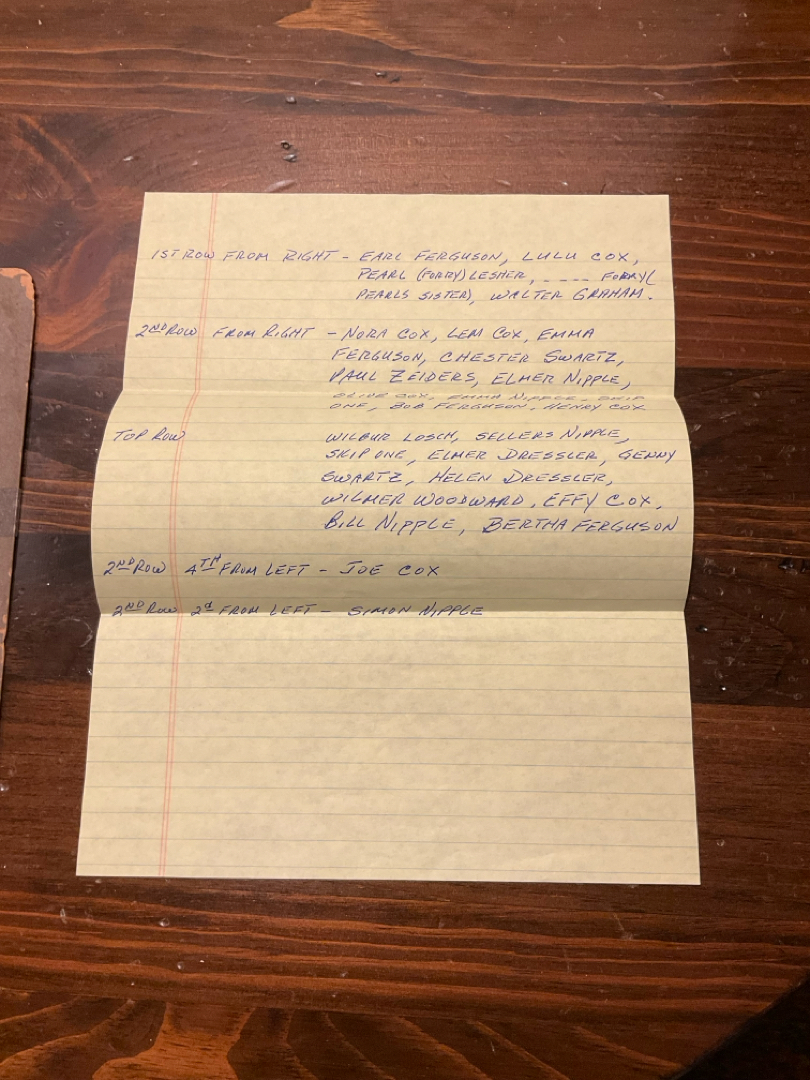 1ST ROW FROM RIGHT - EARL FERGUSON, LULU COX,
PEARL (FORRY) LESHER, ---- FORRY(
PEARLS SISTER), WALTER GRAHAM.
2ND ROW FROM RIGHT - NORA COX, LEM COX, EMMA
FERGUSON, CHESTER SWARTZ,
PAUL ZEIDERS, ELMER NIPPLE,
OLIVE COX, EMMA NIPPLE, SKIP
ONE, BOB FERGUSON, HENRY COX
TOP ROW WILBUR LOSCH, SELLERS NIPPLE,
SKIP ONE, ELMER DRESSLER, GENNY
SWARTZ, HELEN DRESSLER,
WILMER WOODWARD, EFFY COX,
BILL NIPPLE, BERTHA FERGUSON
2ND ROW 4TH FROM LEFT - JOE COX
2ND ROW 2d FROM LEFT - SIMON NIPPLE